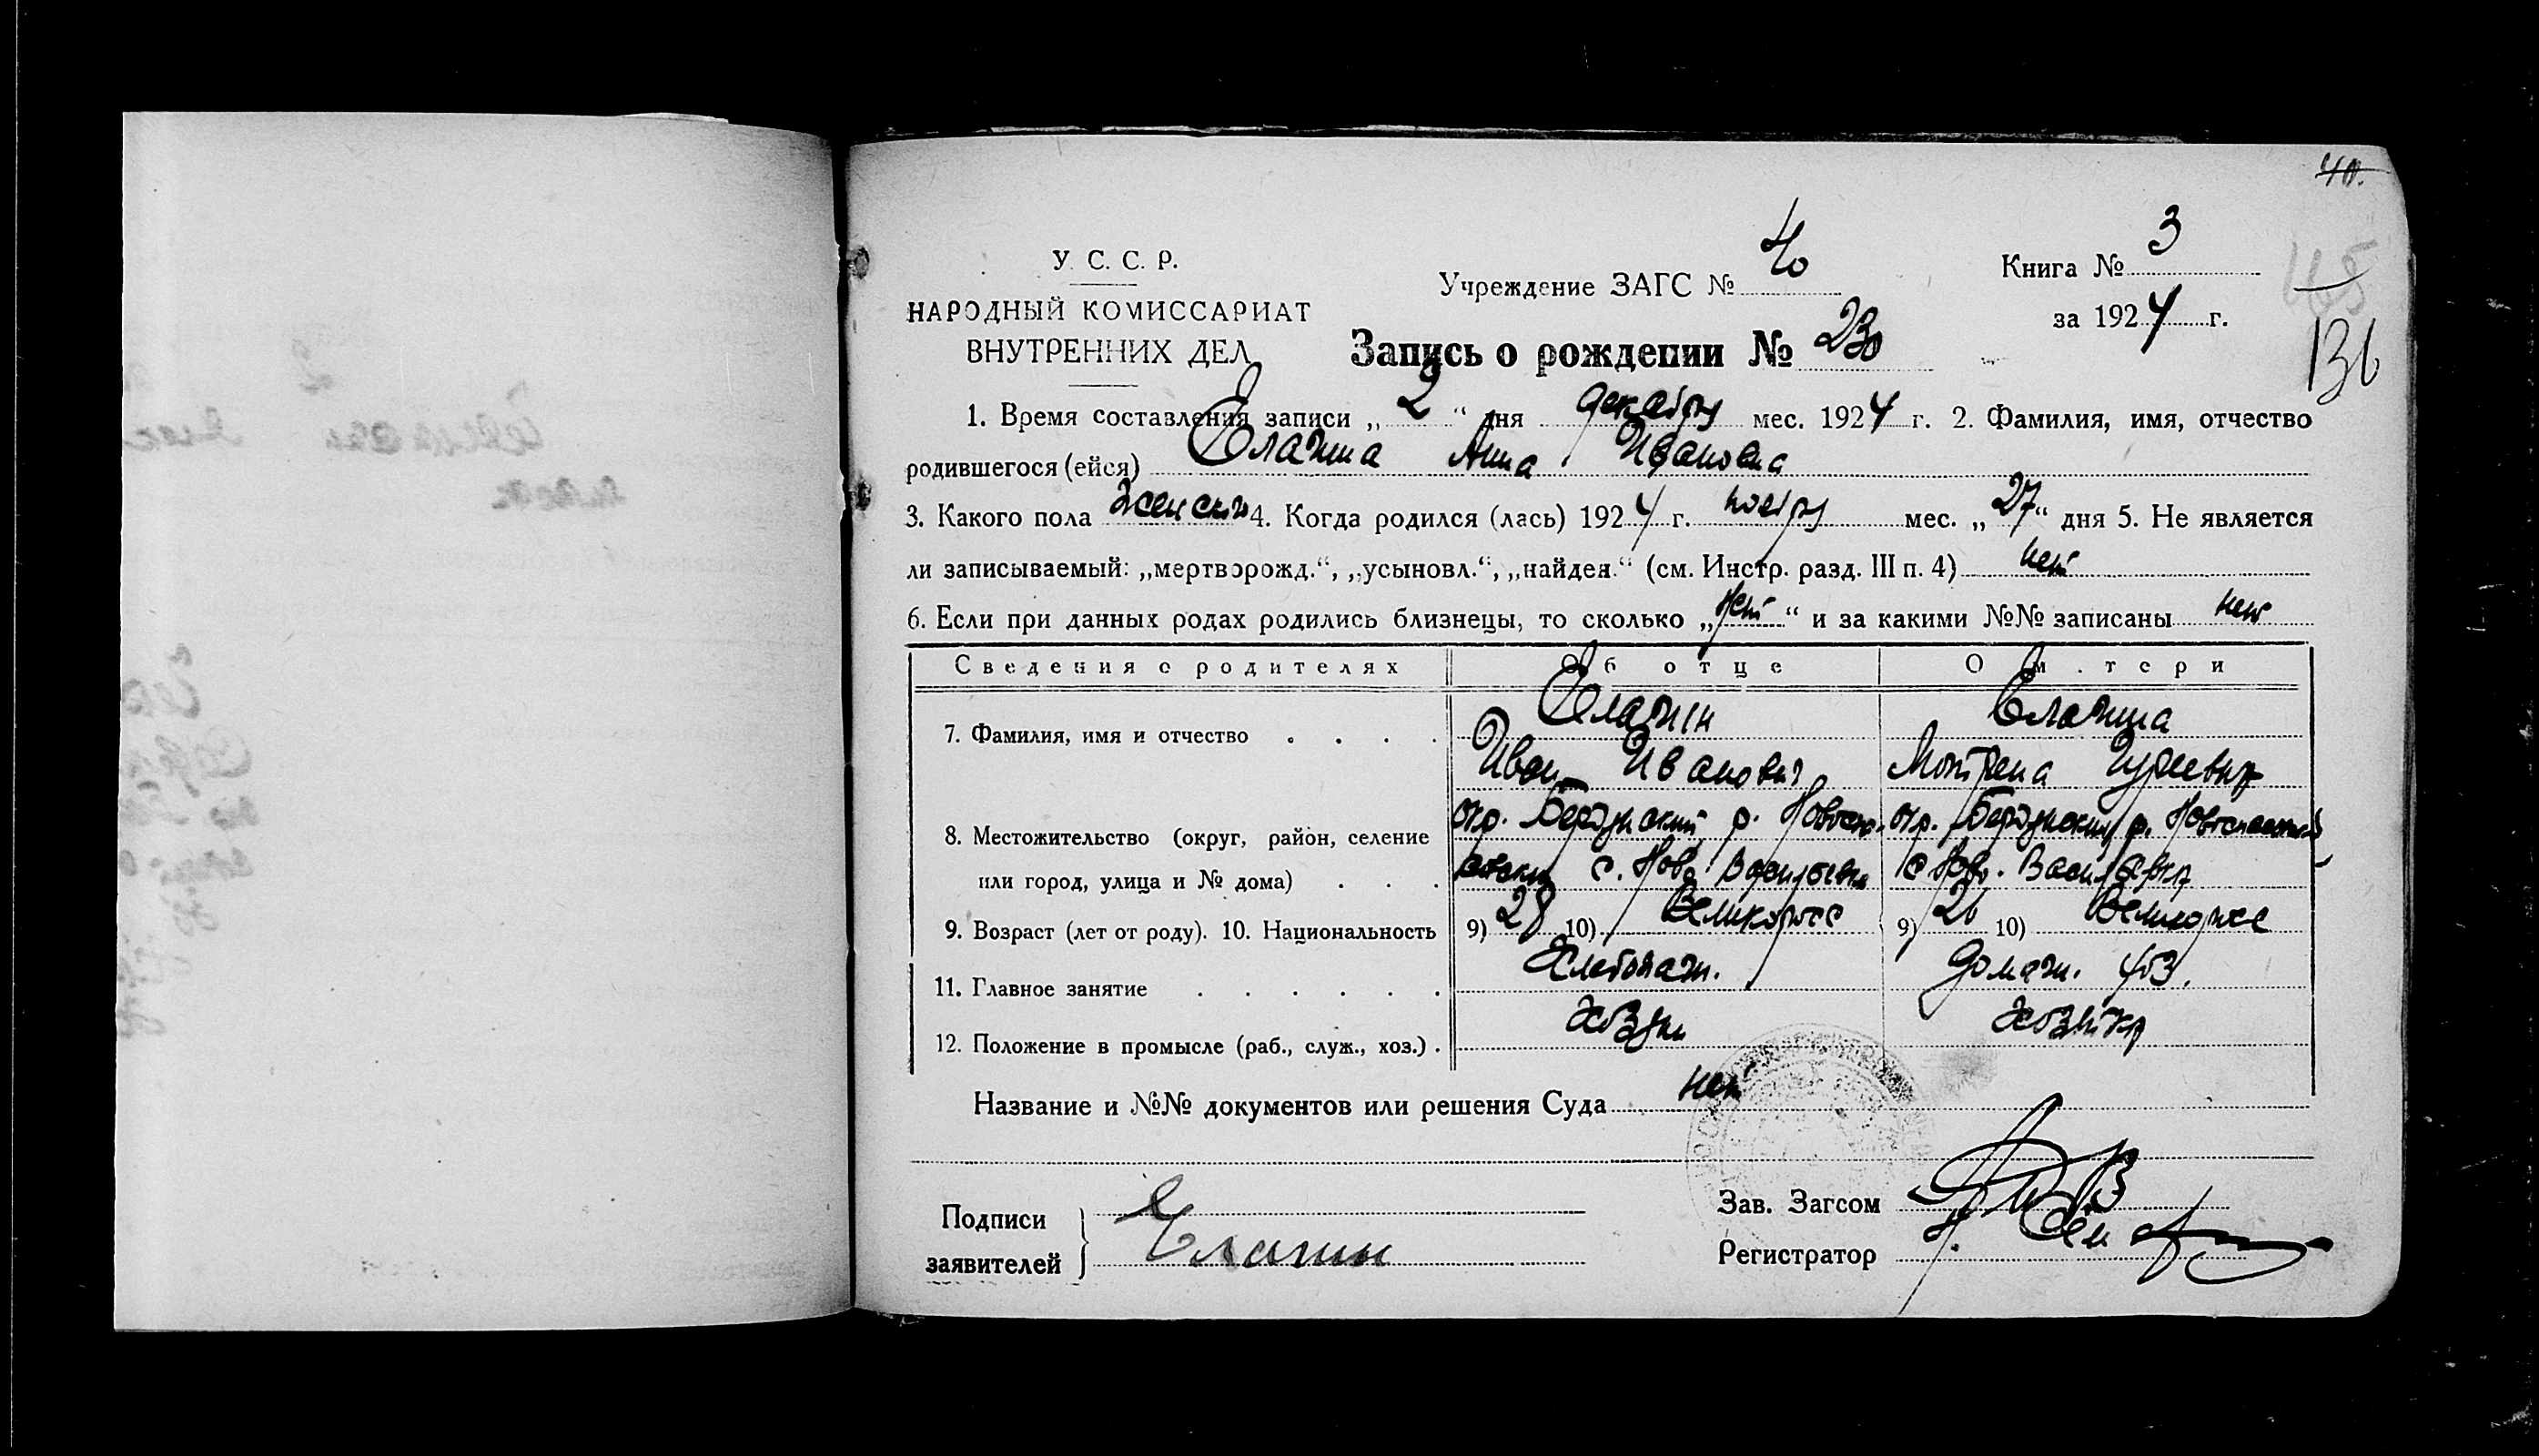 40.
У. С. С. Р.
НАРОДНЫЙ КОМИССАРИАТ
ВНУТРЕННИХ ДЕЛ
Учреждение ЗАГС № 40
Книга № 3
за 1924 г.
136
Запись о рождении № 230
1. Время составления записи „ 2 “ дня декабря мес. 1924 г. 2. Фамилия, имя, отчество
родившегося (ейся) Елагина Анна Ивановна
3. Какого пола женский 4. Когда родился (лась) 1924 г. ноября мес. „ 27 “ дня 5. Не является
ли записываемый: „мертворожд.“, „усыновл.“, „найден.“ (см. Инстр. разд. III п. 4) нет
6. Если при данных родах родились близнецы, то сколько „ нет “ и за какими №№ записаны нет
Сведения о родителях Об отце О м.тери
7. Фамилия, имя и отчество . . . . Елагин Елагина
Иван Иванович Мотрена
8. Местожительство (округ, район, селение окр. Бердянский р. Новоспа- окр. Бердянский р. Новоспасский
или город, улица и № дома) . . . сский с. Ново Васильевка с Ново. Васильевка
9. Возраст (лет от роду). 10. Национальность 9) 28 10) Великоросс 9) 26 10) Великоросс
11. Главное занятие . . . . . . Хлебопаш. Домаш. хоз.
12. Положение в промысле (раб., служ., хоз.) . Хозяин Хозяйка
Название и №№ документов или решения Суда нет
Подписи
заявителей
Елагин
Зав. Загсом
Регистратор